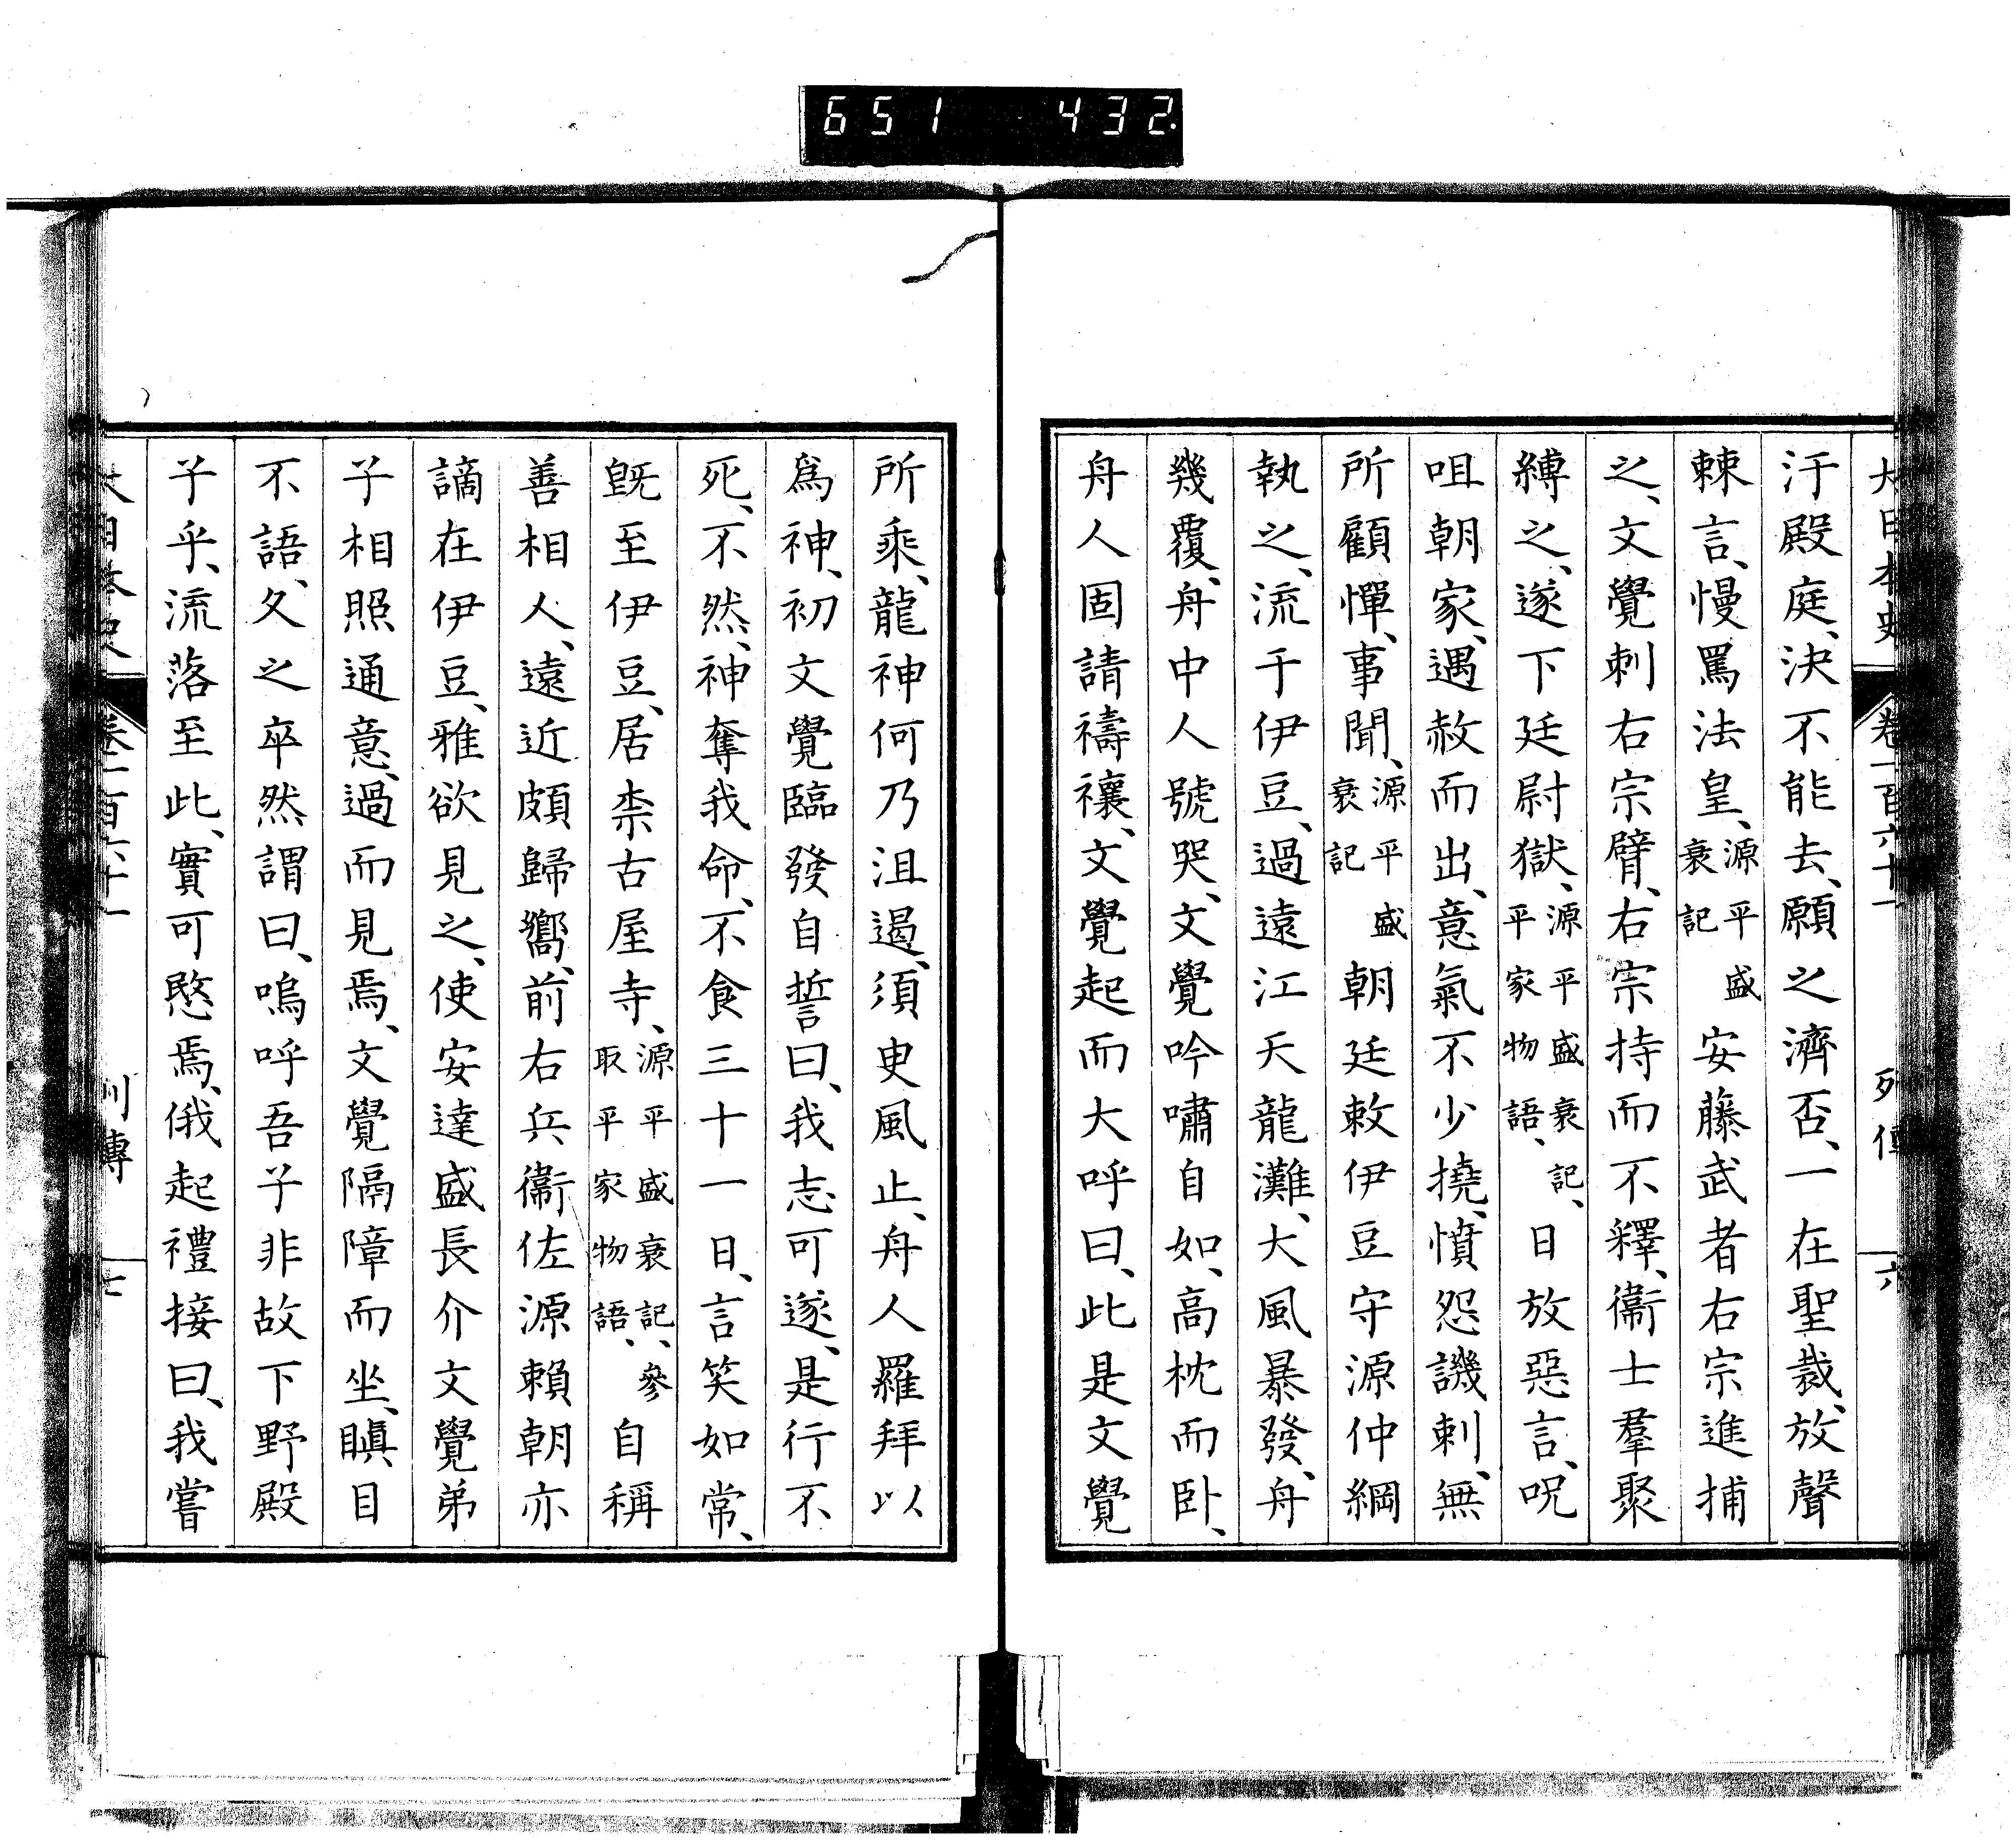 651 432
大日本史 卷一百六十一 列傳 六
汙殿庭、決不能去、願之濟否、一在聖裁、放聲
棘言、慢罵法皇、源平盛衰記安藤武者右宗進捕
之、文覺刺右宗臂、右宗持而不釋、衞士羣聚
縛之、遂下廷尉獄、源平盛衰記、平家物語、日放惡言、呪
咀朝家、遇赦而出、意氣不少撓、憤怨譏刺、無
所顧憚、事聞、源平盛衰記朝廷敕伊豆守源仲綱
執之、流于伊豆、過遠江天龍灘、大風暴發、舟
幾覆、舟中人號哭、文覺吟嘯自如、高枕而臥、
舟人固請禱禳、文覺起而大呼曰、此是文覺
所乘、龍神何乃沮遏、須臾風止、舟人羅拜以
爲神、初文覺臨發自誓曰、我志可遂、是行不
死、不然、神奪我命、不食三十一日、言笑如常、
既至伊豆、居柰古屋寺、源平盛衰記、參取平家物語、自稱
善相人、遠近頗歸嚮、前右兵衞佐源賴朝亦
謫在伊豆、雅欲見之、使安達盛長介文覺弟
子相照通意、過而見焉、文覺隔障而坐、瞋目
不語、久之卒然謂曰、嗚呼吾子非故下野殿
子乎、流落至此、實可愍焉、俄起禮接曰、我嘗
大日本史 卷一百六十一 列傳 七